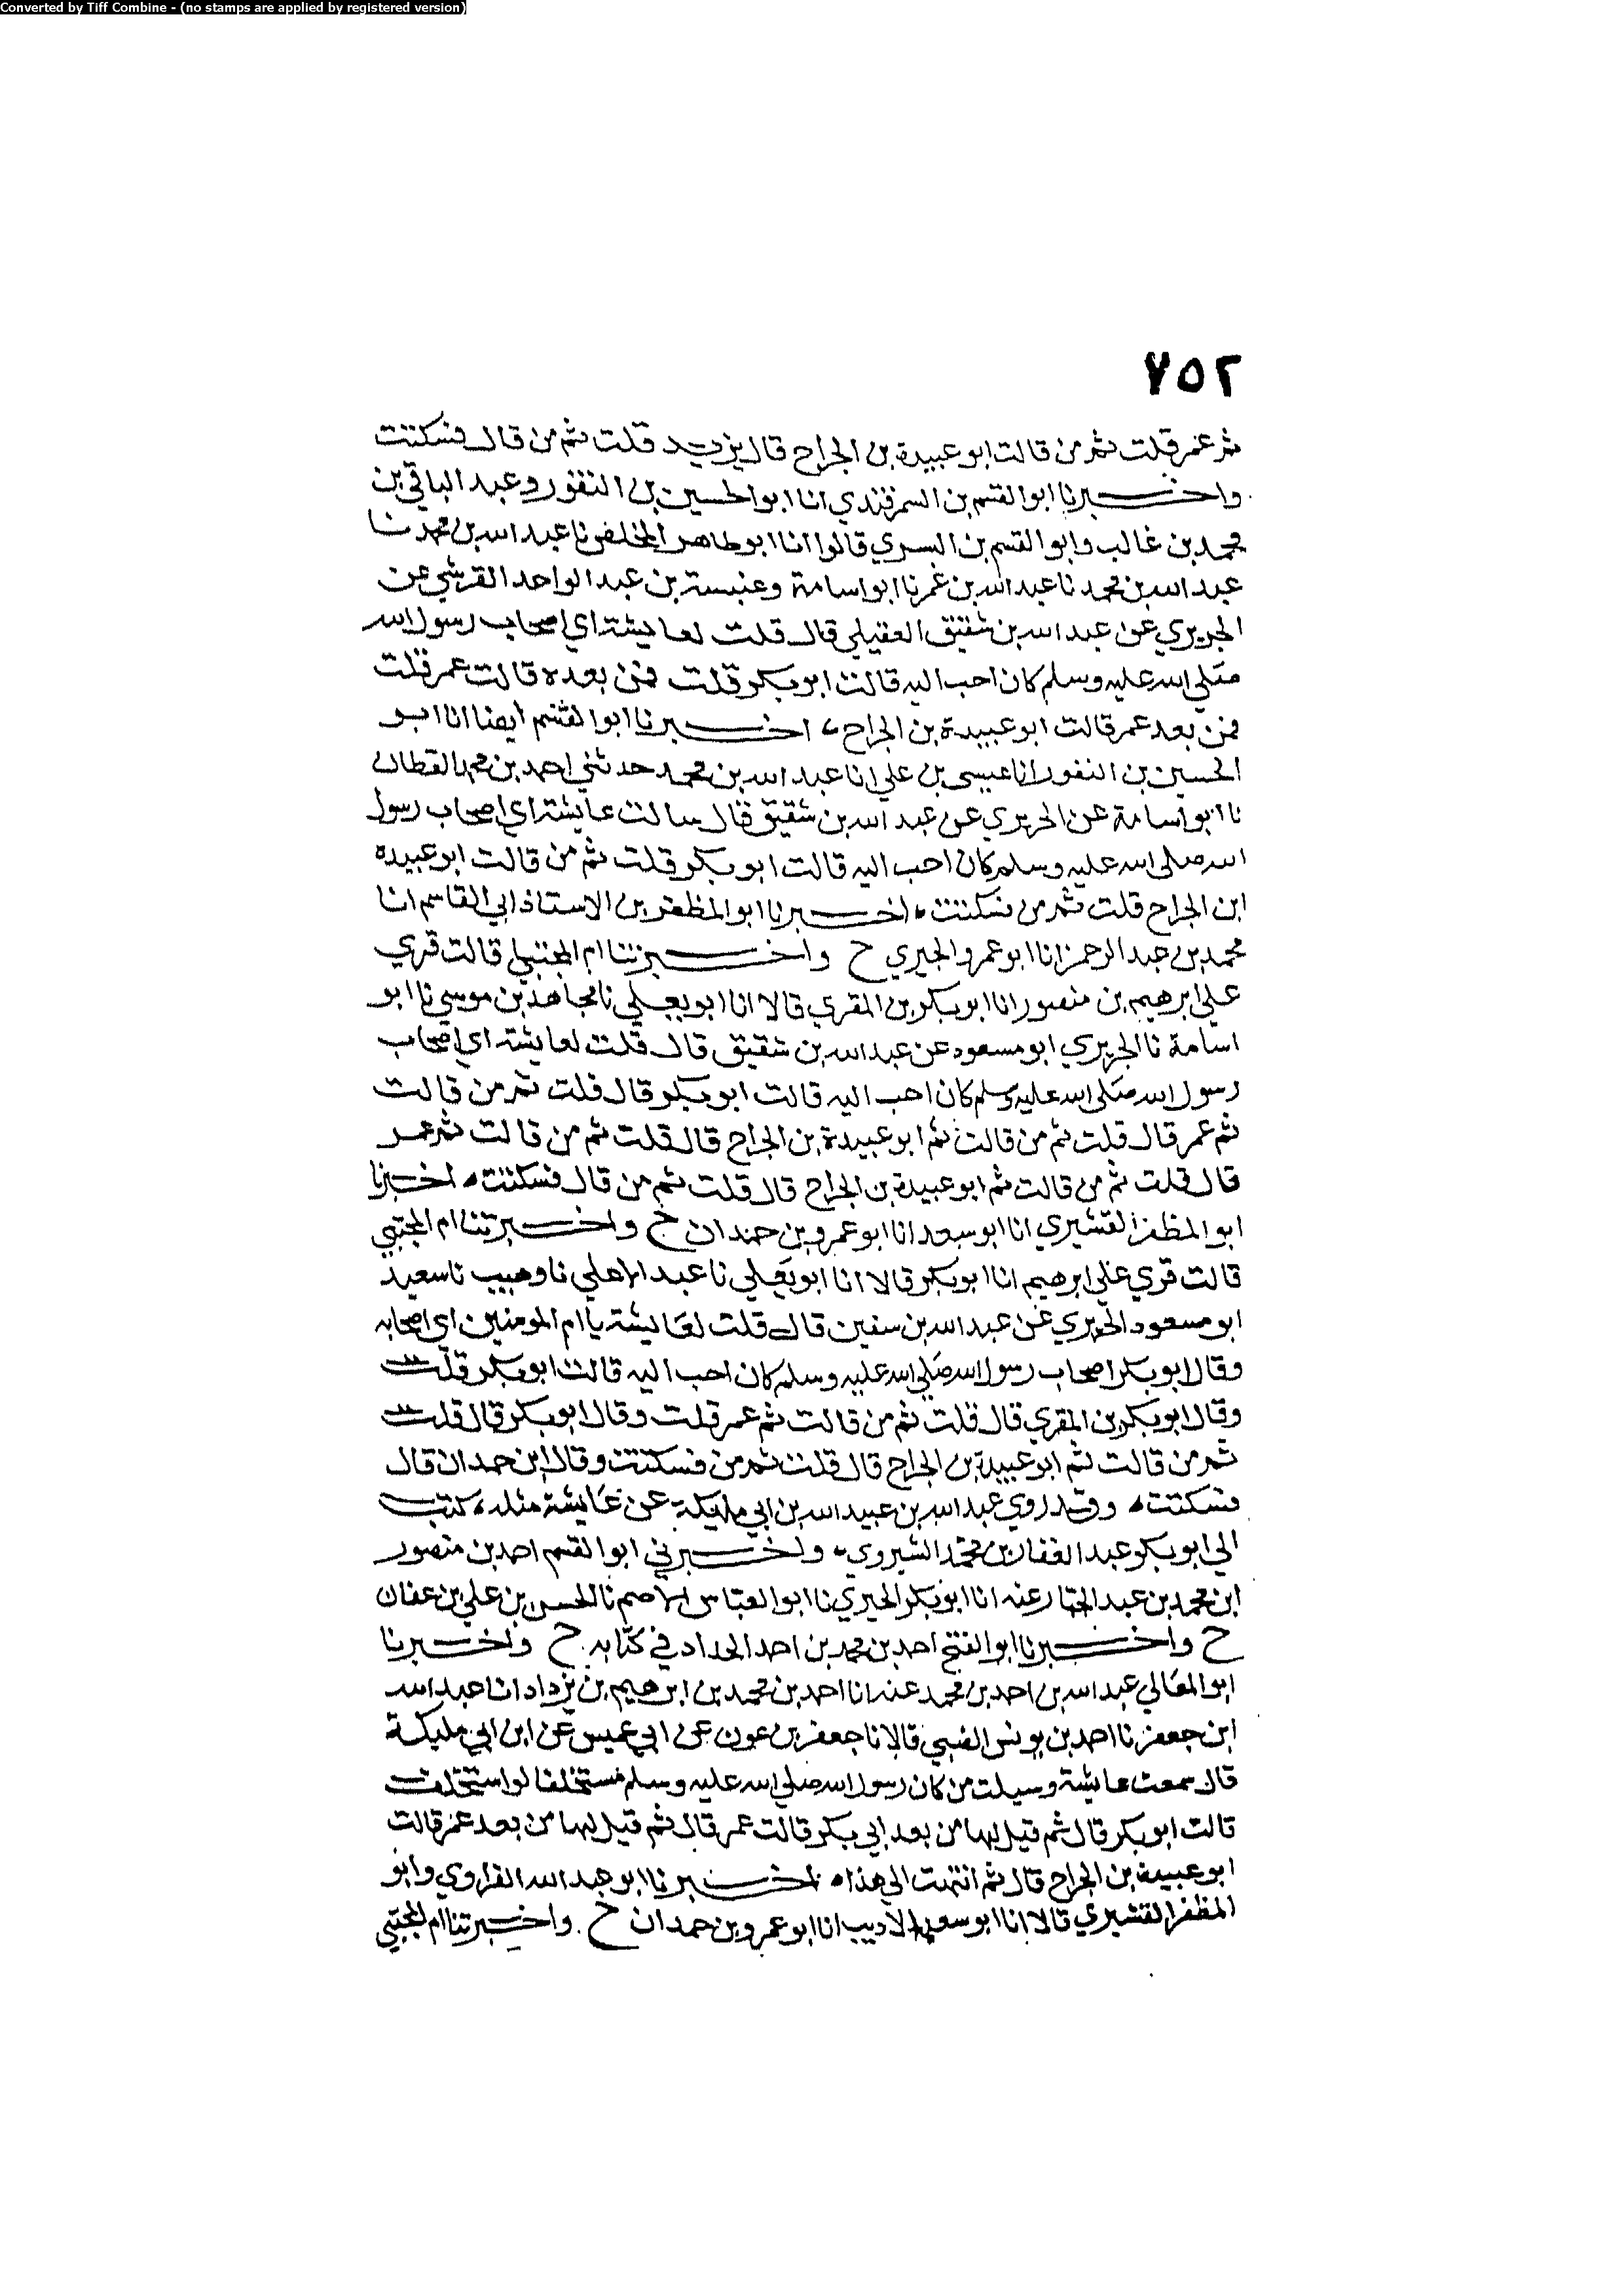 Converted by Tiff Combine - (no stamps are applied by registered version)
٧٥٢
ثم عمر قلت ثم من قالت ابو عبيدة بن الجراح قال يزيد قلت ثم من قال فسكتت
واخبرنا ابو القسم بن السمرقندي انا ابو الحسين بن النقور وعبد الباقي بن
محمد بن غالب وابو القسم بن البسري قالوا انا ابو طاهر المخلص نا عبد الله بن محمد نا
عبد الله بن محمد نا عبد الله بن عمر نا ابو اسامة وعنبسة بن عبد الواحد القرشي عن
الجريري عن عبد الله بن شقيق العقيلي قال قلت لعايشة اي اصحاب رسول الله
صلى الله عليه وسلم كان احب اليه قالت ابو بكر قلت فمن بعده قالت عمر قلت
فمن بعد عمر قالت ابو عبيدة بن الجراح، اخبرنا ابو القسم ايضا انا ابو
الحسين بن النقور انا عيسى بن علي انا عبد الله بن محمد حدثني احمد بن محمد القطان
نا ابو اسامة عن الجريري عن عبد الله بن شقيق قال سالت عايشة اي اصحاب رسول
الله صلى الله عليه وسلم كان احب اليه قالت ابو بكر قلت ثم من قالت ابو عبيده
ابن الجراح قلت ثم من فسكتت، اخبرنا ابو المظفر بن الاستاذ ابي القاسم انا
محمد بن عبد الرحمن انا ابو عمرو الحيري ح واخبرتنا ام المجتبى قالت قري
على ابرهيم بن منصور انا ابو بكر بن المقري قالا انا ابو يعلي نا مجاهد بن موسي نا ابو
اسامة نا الجريري ابو مسعود عن عبد الله بن شقيق قال قلت لعايشة اي اصحاب
رسول الله صلى الله عليه وسلم كان احب اليه قالت ابو بكر قال قلت ثم من قالت
ثم عمر قال قلت ثم من قالت ثم ابو عبيدة بن الجراح قال قلت ثم من قالت ثم عمر
قال قلت ثم من قالت ثم ابو عبيدة بن الجراح قال قلت ثم من قال فسكتت، اخبرنا
ابو المظفر القشيري انا ابو سعد انا ابو عمرو بن حمدان ح واخبرتنا ام المجتبي
قالت قري علي ابرهيم انا ابو بكر قالا انا ابو يعلي نا عبد الاعلي نا وهيب نا سعيد
ابو مسعود الجريري عن عبد الله بن سفين قال قلت لعايشة يا ام المومنين اي اصحابه
وقال ابو بكر اصحاب رسول الله صلي الله عليه وسلم كان احب اليه قالت ابو بكر قلت
وقال ابو بكر بن المقري قال قلت ثم من قالت ثم عمر قلت وقال ابو بكر قال قلت
ثم من قالت ثم ابو عبيدة بن الجراح قال قلت ثم من فسكتت وقال ابن حمدان قال
فسكتت، وقد روي عبد الله بن عبيد الله بن ابي مليكة عن عايشة مثله، كتب
الي ابو بكر عبد الغفار بن محمد الشيروي، واخبرني ابو القسم احمد بن منصور
ابن محمد بن عبد الجبار عنه انا ابو بكر الحيري نا ابو العباس الاصم نا الحسن بن علي بن عفان
ح واخبرنا ابو الفتح احمد بن محمد بن احمد الحداد في كتابه ح واخبرنا
ابو المعالي عبد الله بن احمد بن محمد عنه انا احمد بن محمد بن ابرهيم بن يزداد انا عبد الله
ابن جعفر نا احمد بن يونس الضبي قالا نا جعفر بن عون عن ابي عميس عن ابن ابي مليكة
قال سمعت عايشة وسيلت من كان رسول الله صلي الله عليه وسلم مستخلفا لو استخلف
قالت ابو بكر قال ثم قيل لها من بعد ابي بكر قالت عمر قال ثم قيل لها من بعد عمر قالت
ابو عبيدة بن الجراح قال ثم انتهت الي هذا، اخبرنا ابو عبد الله الفراوي وابو
المظفر القشيري قالا انا ابو سعد الاديب انا ابو عمرو بن حمدان ح واخبرتنا ام المجتبي